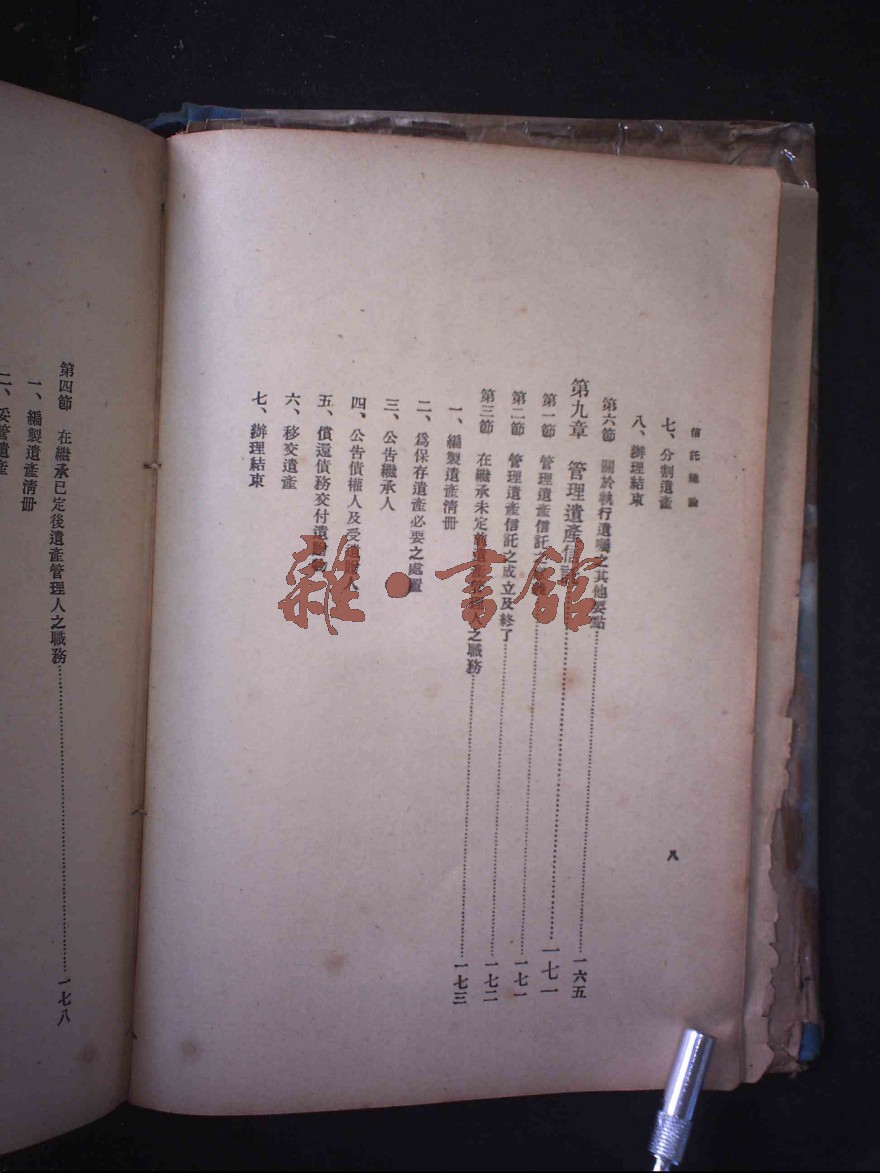 信託總論
七、分割遺產
八、辦理結束
第六節 關於執行遺囑之其他要點……一六五
第九章 管理遺產信託……一七一
第一節 管理遺產信託之……一七一
第二節 管理遺產信託之成立及終了……一七二
第三節 在繼承未定前遺產管理人之職務……一七三
一、編製遺產清冊
二、爲保存遺產必要之處置
三、公告繼承人
四、公告債權人及受遺贈人
五、償還債務交付遺贈物
六、移交遺產
七、辦理結束
八
第四節 在繼承已定後遺產管理人之職務……一七八
一、編製遺產清冊
二、妥管遺產
雜·書館